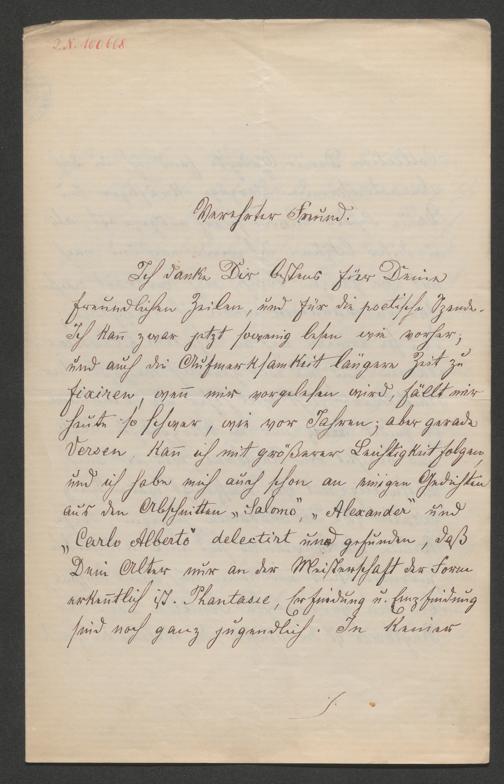 2. N. 100668
Verehrter Freund.
Ich danke Dir bestens für Deine
freundlichen Zeilen, und für die poetische Spende.
Ich kañ zwar jetzt sowenig lesen wie vorher;
und auch die Aufmerksamkeit längere Zeit zu
fixiren, weñ mir vorgelesen wird, fällt mir
heute so schwer, wie vor Jahren; aber gerade
Versen, kañ ich mit größerer Leichtigkeit folgen,
und ich habe mich auch schon an einigen Gedichten
aus den Abschnitten „Salomo", „Alexander" und
„Carlo Alberto" delectirt und gefunden, daß
Dein Alter nur an der Meisterschaft der Form
erkeñtlich ist. Phantasie, Erfindung u. Empfindung
sind noch ganz jugendlich. In Keiner